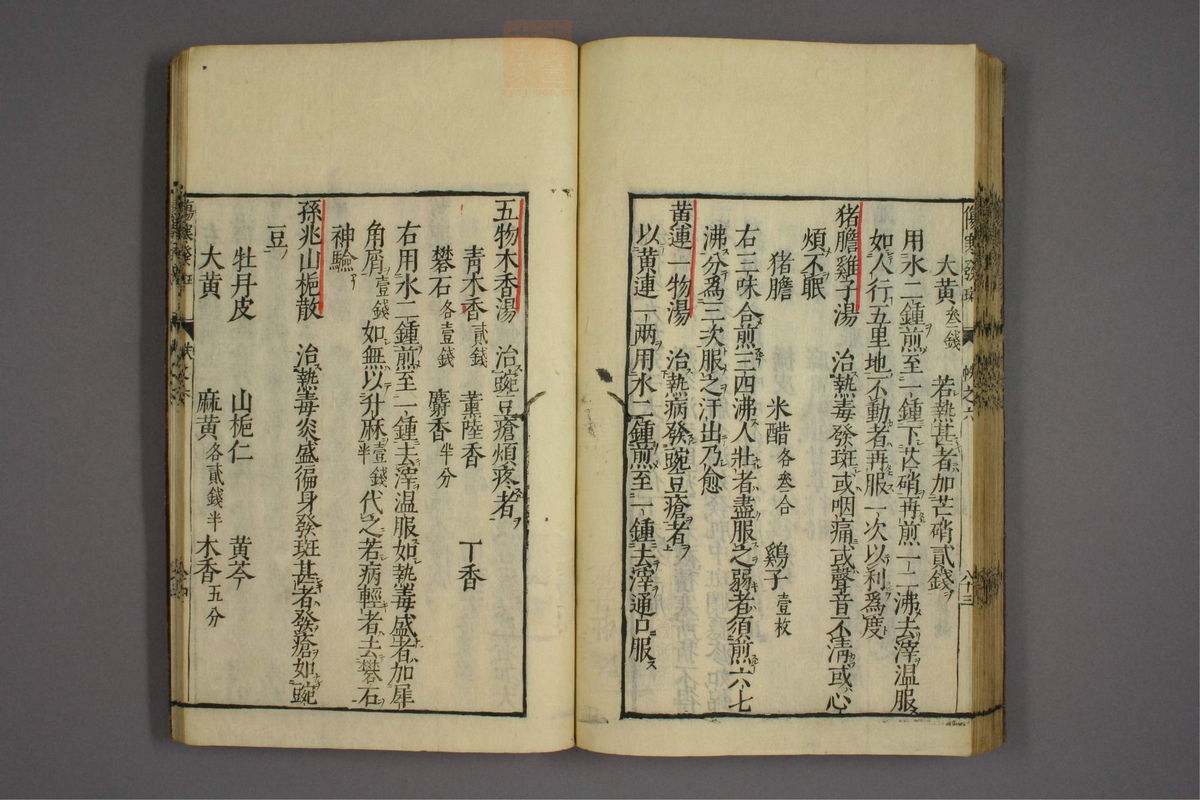 大黄叁錢　若熱甚者加芒硝貳錢
用水二鍾煎至一鍾下芒硝再煎一二沸去滓温服
如人行五里地不動者再服一次以利爲度
猪膽雞子湯　治熱毒發斑或咽痛或聲音不淸或心
煩不眠
猪膽　米醋各叁合　鷄子壹枚
右三味合煎三四沸人壯者盡服之弱者須煎六七
沸分爲三次服之汗出乃愈
黄連一物湯　治熱病發豌豆瘡者
以黄連一兩用水二鍾煎至一鍾去滓通口服
五物木香湯　治豌豆瘡煩疼者
青木香貳錢　薫陸香　丁香
礬石各壹錢　麝香半分
右用水二鍾煎至一鍾去滓温服如熱毒盛者加犀
角屑壹錢如無以升麻壹錢半代之若病輕者去礬石
神驗
孫兆山梔散　治熱毒炎盛徧身發斑甚者發瘡如豌
豆
牡丹皮　山梔仁　黄芩
大黄　麻黄各貳錢半　木香五分